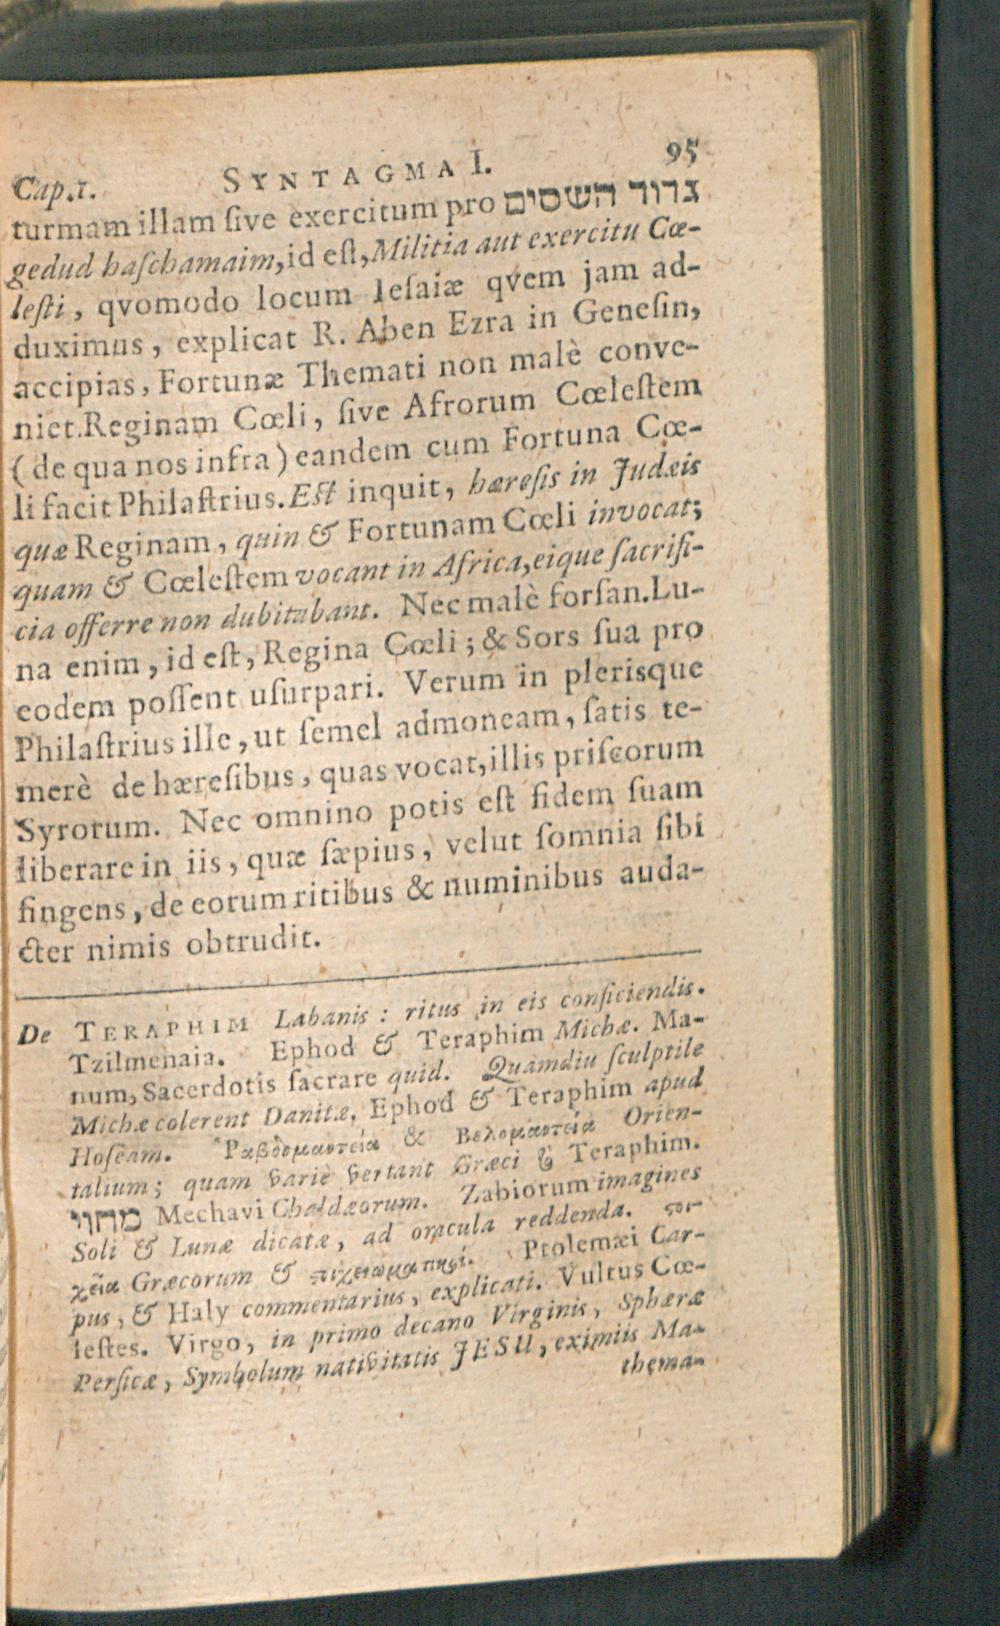 Cap.1. SYNTAGMA I. 95
turmam illam ſive exercitum pro גדוד השסים
gedud haſchamaim, id eſt, Militia aut exercitu Cœ-
leſti, qvomodo locum Ieſaiæ qvem jam ad-
duximus, explicat R. Aben Ezra in Geneſin,
accipias, Fortunæ Themati non malè conve-
niet. Reginam Cœli, ſive Afrorum Cœleſtem
(de qua nos infra) eandem cum Fortuna Cœ-
li facit Philaſtrius. Eſt inquit, hæreſis in Judæis
quæ Reginam, quin & Fortunam Cœli invocat;
quam & Cœleſtem vocant in Africa, eique ſacrifi-
cia offerre non dubitabant. Nec malè forſan. Lu-
na enim, id eſt, Regina Cœli; & Sors ſua pro
eodem poſſent uſurpari. Verum in plerisque
Philaſtrius ille, ut ſemel admoneam, ſatis te-
merè de hæreſibus, quas vocat, illis priſcorum
Syrorum. Nec omnino potis eſt fidem ſuam
liberare in iis, quæ ſæpius, velut ſomnia ſibi
fingens, de eorum ritibus & numinibus auda-
cter nimis obtrudit.
De TERAPHIM Labanis: ritus in eis conficiendis.
Tzilmenaia. Ephod & Teraphim Michæ. Ma-
num, Sacerdotis ſacrare quid. Quàmdiu ſculptile
Michæ colerent Danitæ, Ephod & Teraphim apud
Hoſeam. Ῥαβδομαντεία & Βελομαντεία Orien-
talium; quam variè vertant Græci & Teraphim.
מחוי Mechavi Chaldæorum. Zabiorum imagines
Soli & Lunæ dicatæ, ad oracula reddenda. ϛοι-
χεῖα Græcorum & ϛοιχειωματικοί. Ptolemæi Car-
pus, & Haly commentarius, explicati. Vultus Cœ-
leſtes. Virgo, in primo decano Virginis, Sphæræ
Perſicæ, Symbolum nativitatis JESU, eximiis Ma-
thema-